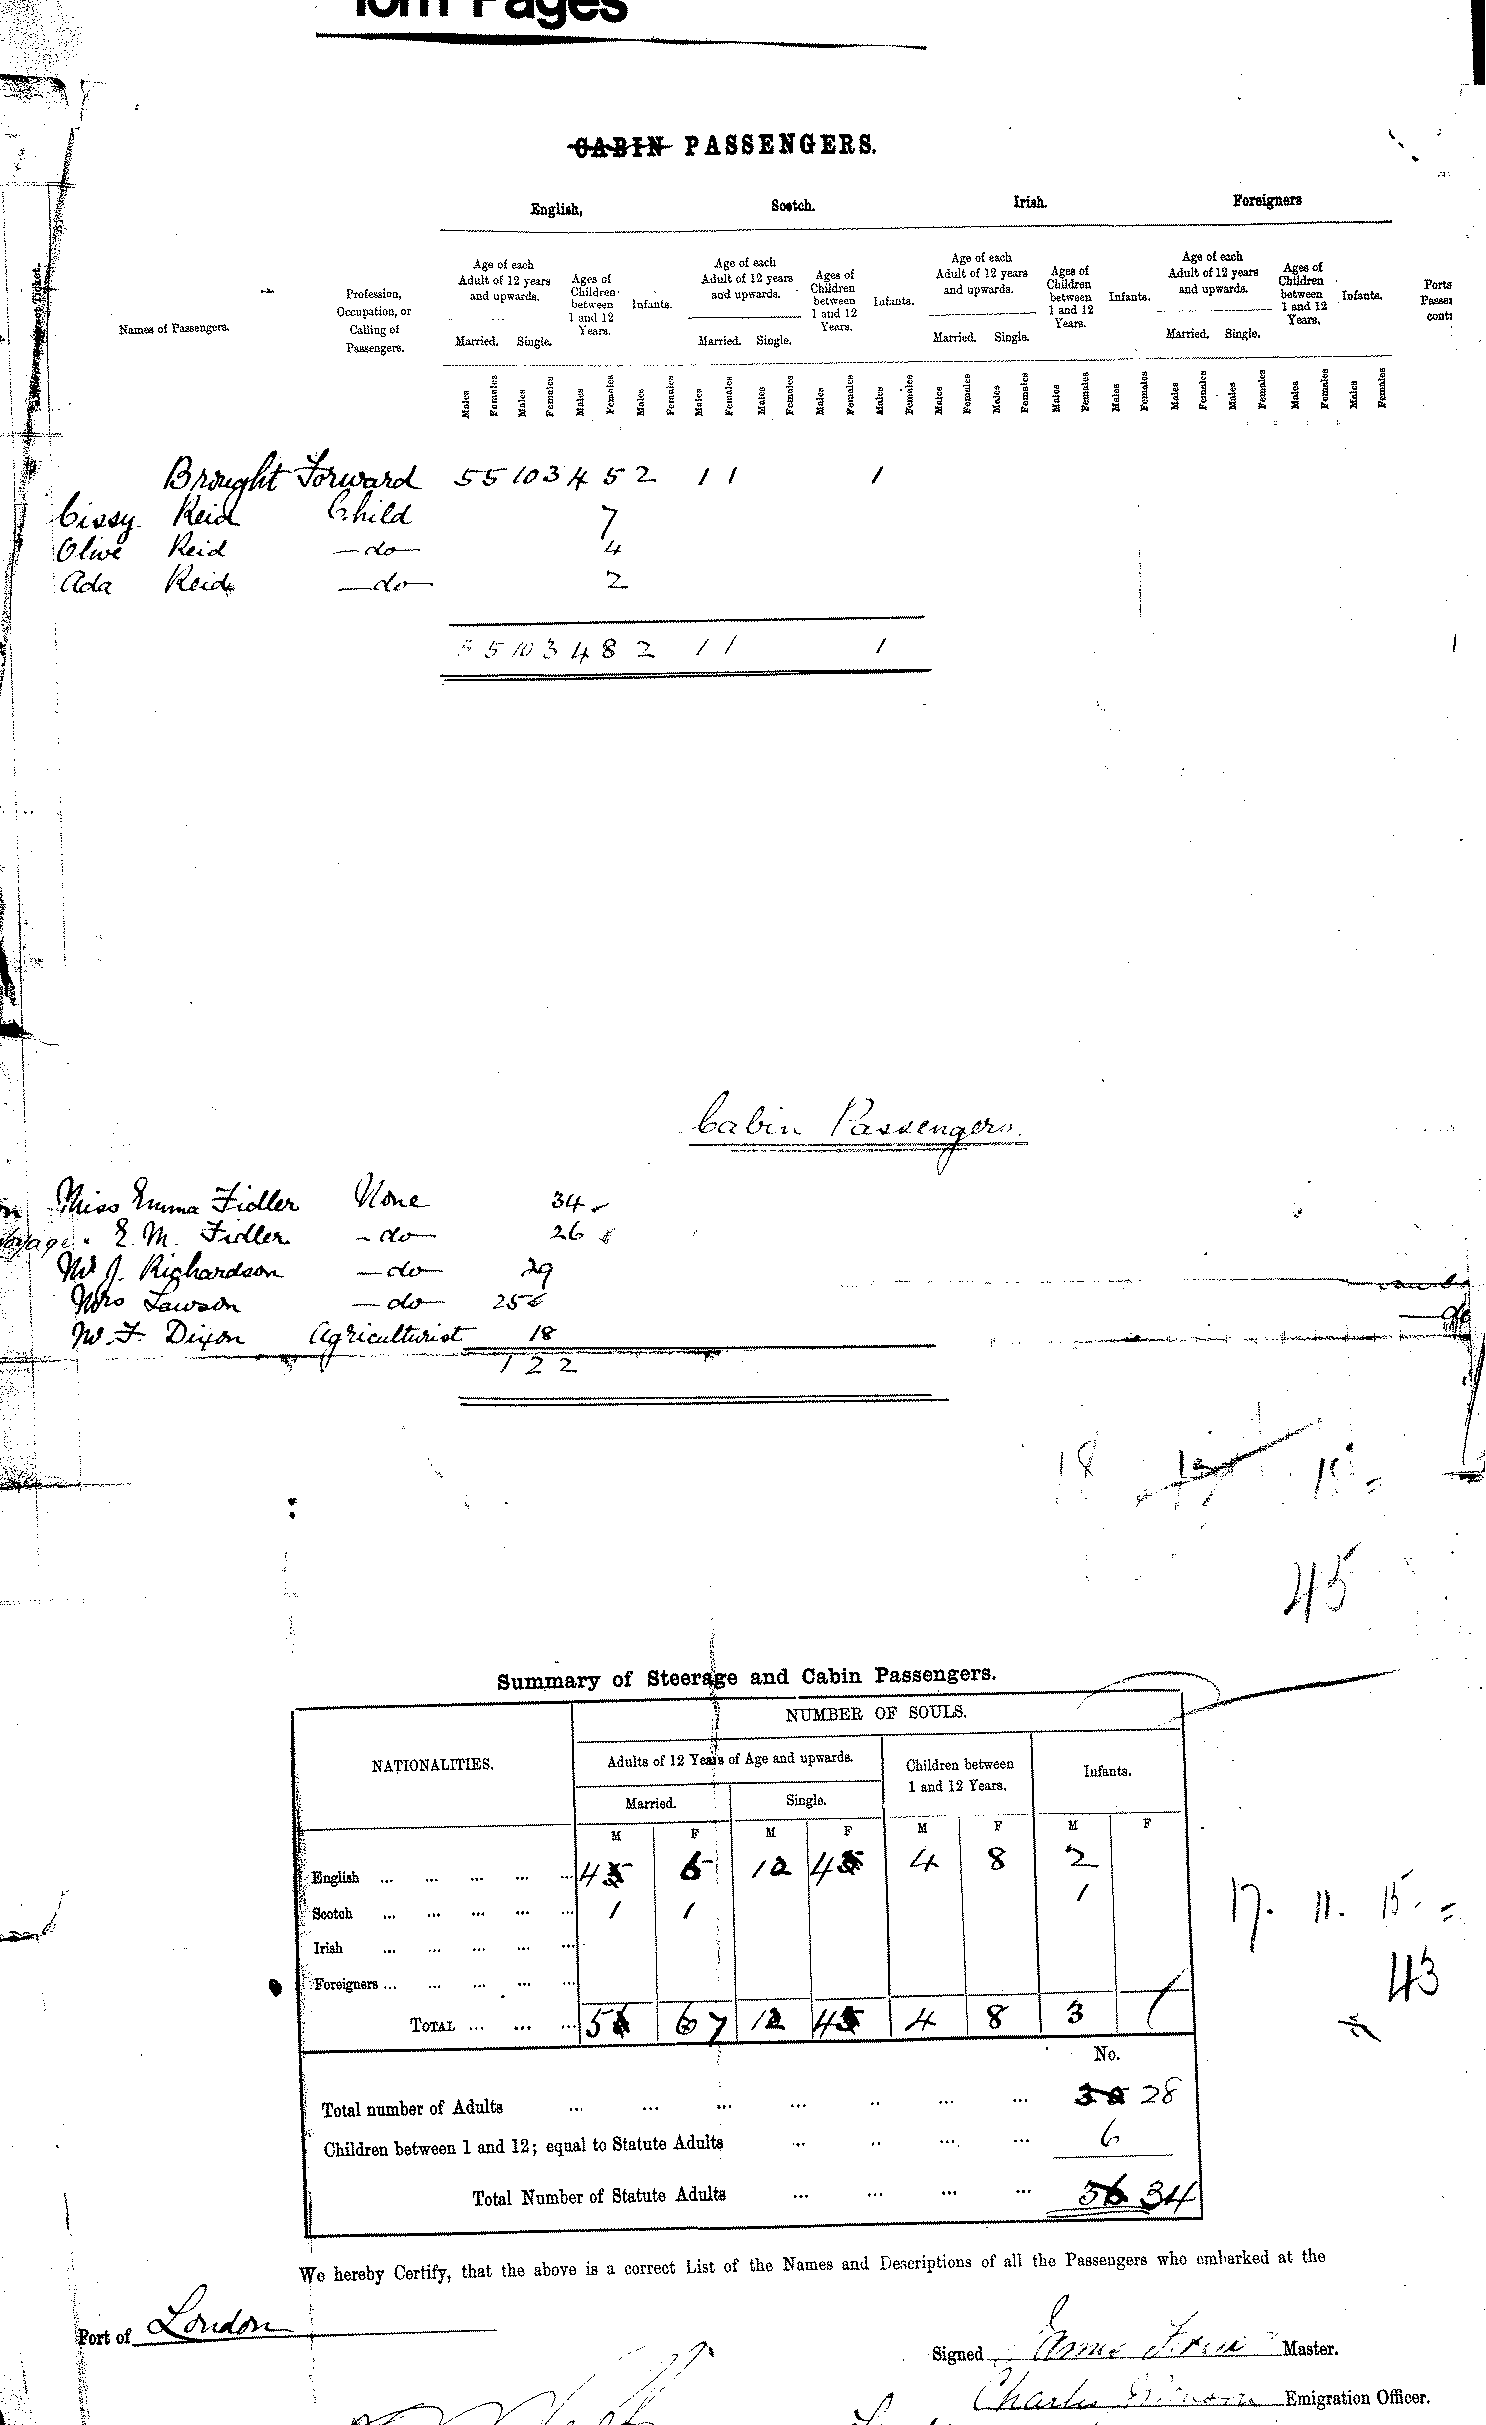 Torn Pages
CABIN PASSENGERS.
English, Scotch. Irish. Foreigners
Names of Passengers. Profession, Occupation, or Calling of Passengers.
Age of each Adult of 12 years and upwards. Ages of Children between 1 and 12 Years. Infants. Age of each Adult of 12 years and upwards. Ages of Children between 1 and 12 Years. Infants. Age of each Adult of 12 years and upwards. Ages of Children between 1 and 12 Years. Infants. Age of each Adult of 12 years and upwards. Ages of Children between 1 and 12 Years. Infants. Ports
Married. Single. Married. Single. Married. Single. Married. Single.
Males Females Males Females Males Females Males Females Males Females Males Females Males Females Males Females Males Females Males Females Males Females Males Females Males Females Males Females Males Females Males Females
Brought Forward 5 5 10 3 4 5 2 1 1 1
Cissy Reid Child 7
Olive Reid —do— 4
Ada Reid —do— 2
5 5 10 3 4 8 2 1 1 1
Cabin Passengers.
Miss Emma Fidler None 34
" E. M. Fidler —do— 26
Mr J. Richardson —do— 29
Mrs Lawson —do— 25
W. F. Dixon Agriculturist 18
1 2 2
18
45
Summary of Steerage and Cabin Passengers.
NUMBER OF SOULS.
NATIONALITIES. Adults of 12 Years of Age and upwards. Children between 1 and 12 Years. Infants.
Married. Single.
M F M F M F M F
English ... ... ... ... ... 4 5 12 4 4 8 2
Scotch ... ... ... ... ... 1 1 1
Irish ... ... ... ... ...
Foreigners ... ... ... ... ...
TOTAL ... ... ... 5 6 7 12 4 4 8 3
No.
Total number of Adults ... ... ... ... ... ... ... 28
Children between 1 and 12; equal to Statute Adults ... ... ... ... 6
Total Number of Statute Adults ... ... ... ... 36 34
17. 11. 15. =
43
We hereby Certify, that the above is a correct List of the Names and Descriptions of all the Passengers who embarked at the
Port of London
Signed Master.
Charles Emigration Officer.